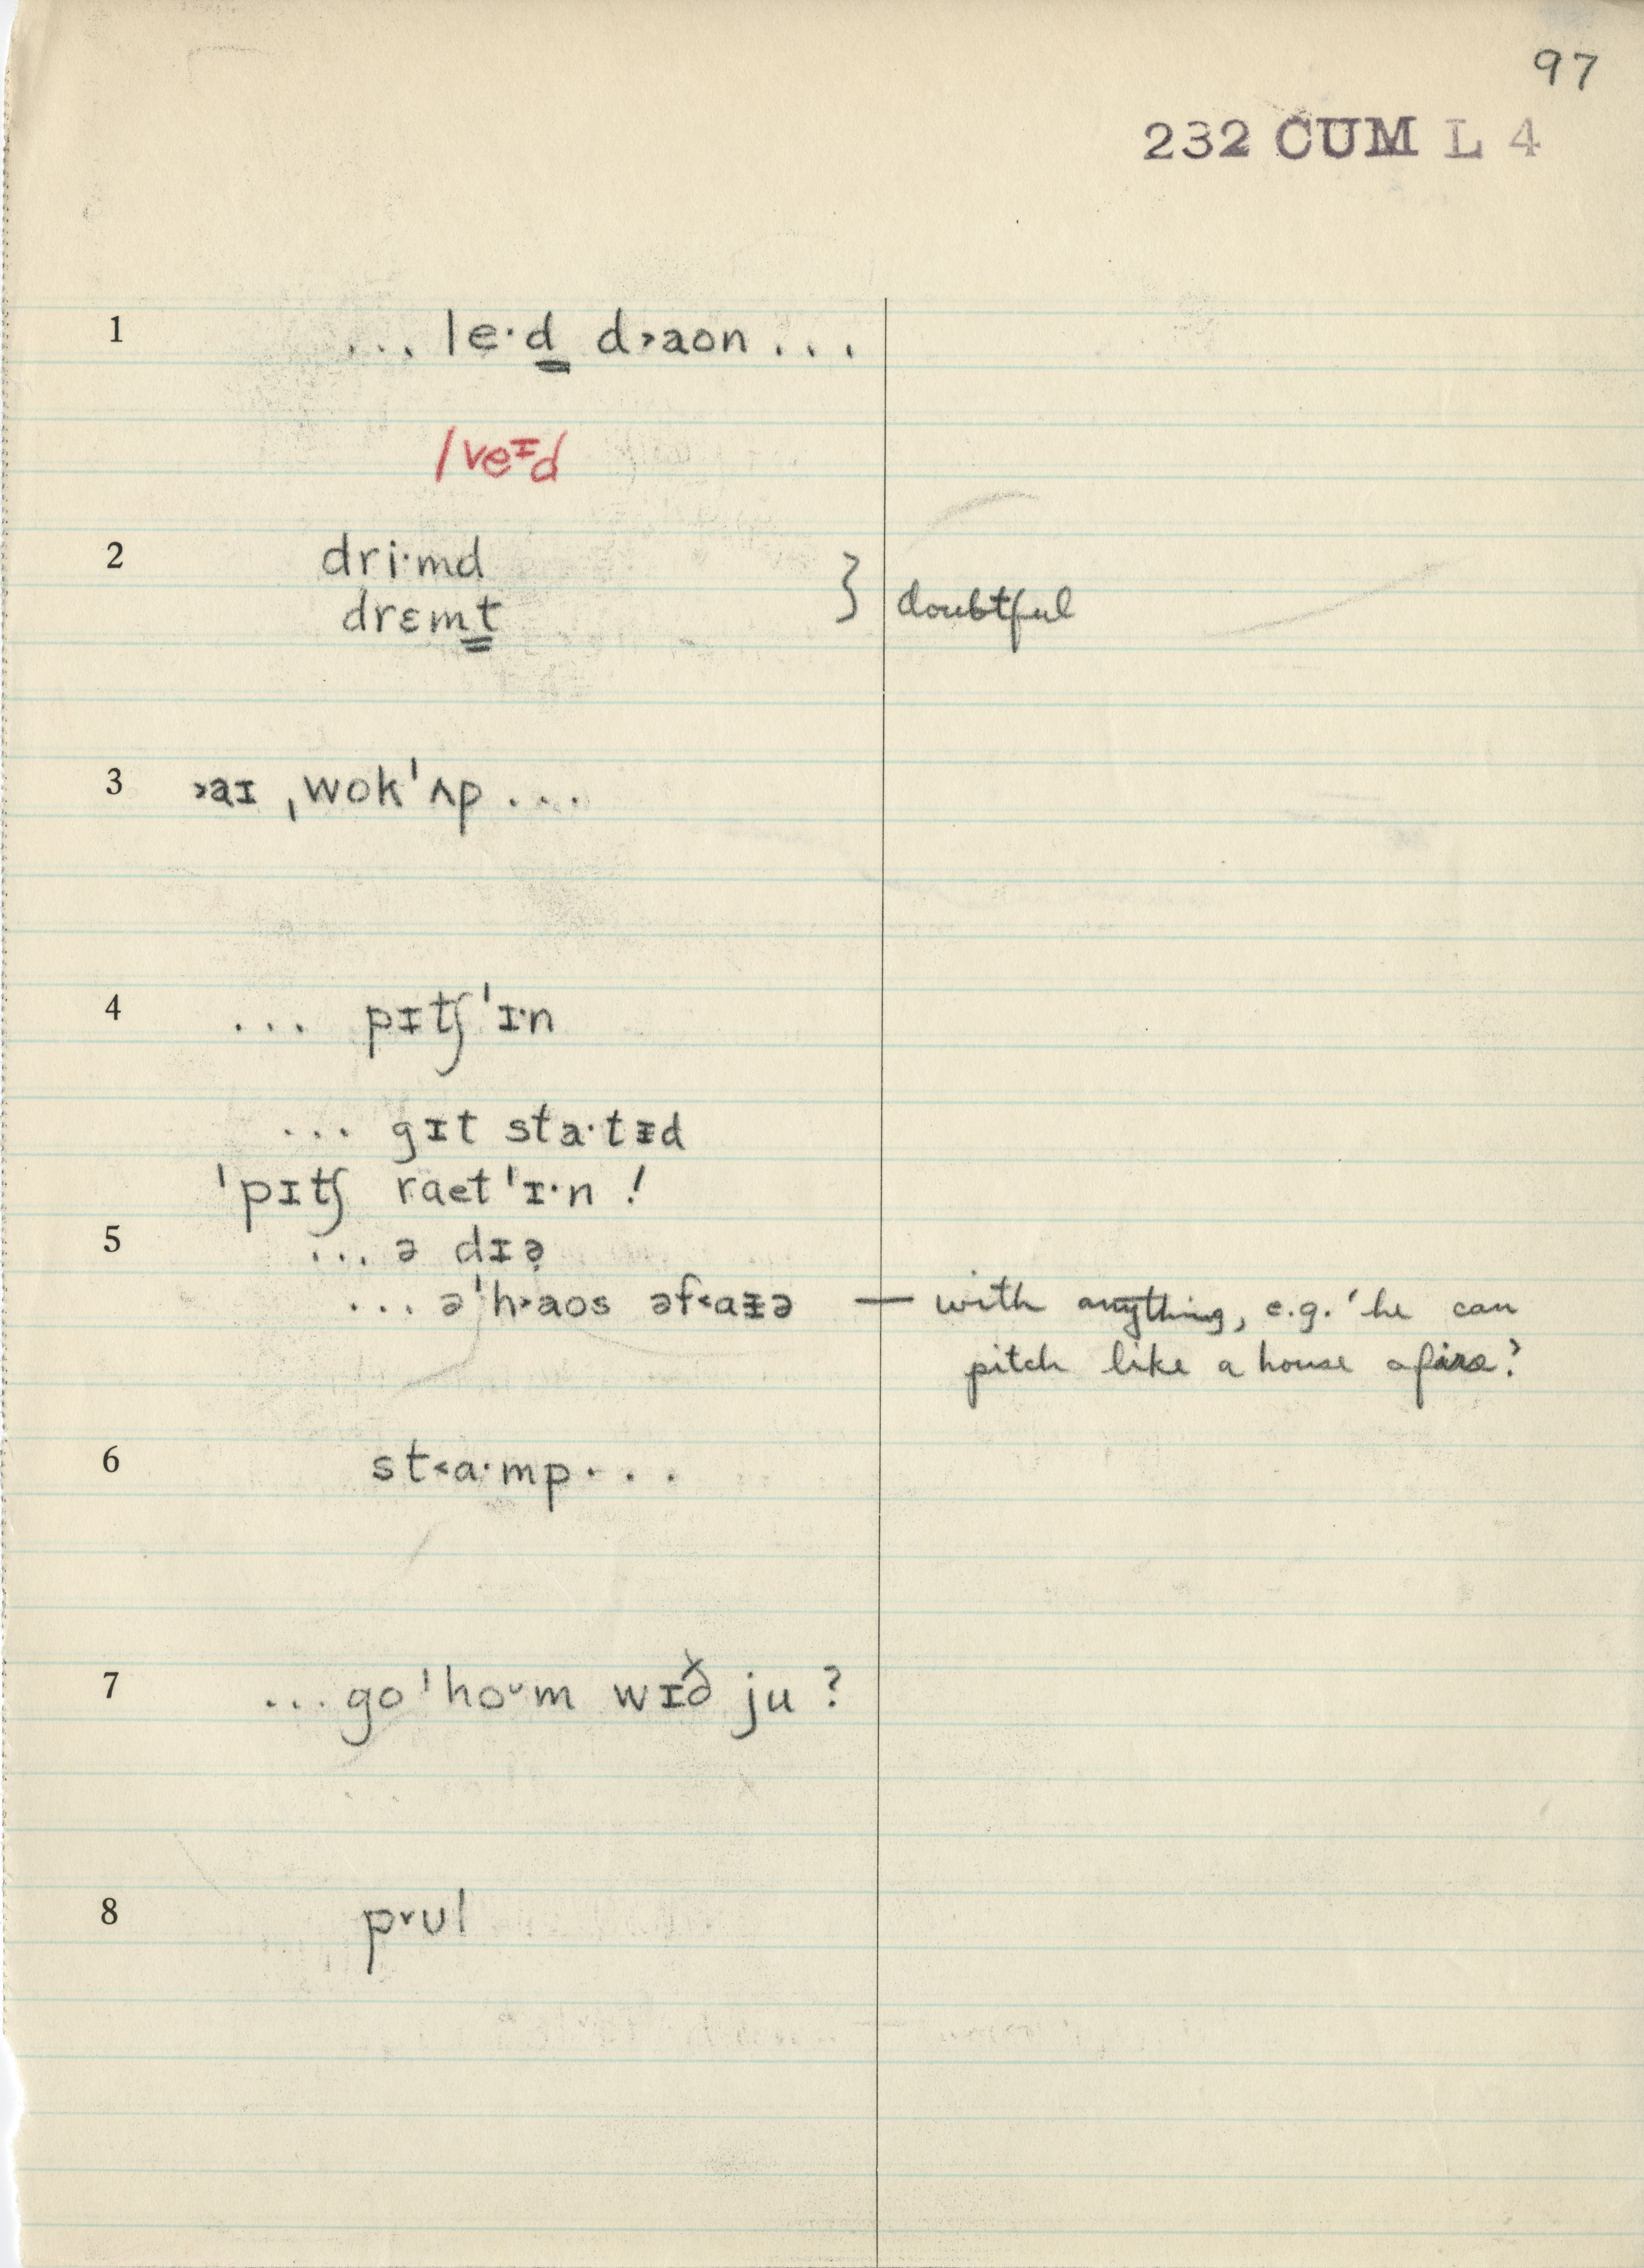 97
232 CUM L 4
1 ... le·d d˃aon ...
/veᶦd
2 dri·md } doubtful
drɛmt
3 ˃aɪ ˌwokˈʌp ...
4 ... pɪtʃˈɪ·n
... gɪt sta·tᵻd
ˈpɪtʃ raetˈɪ·n !
5 ... ə dɪə̣
... əˈh˃aos əf˂aᵻə — with anything, e.g. 'he can
pitch like a house afire.'
6 st˂a·mp ...
7 ... goˈhoᵘm wɪð ju ?
8 p˅ul